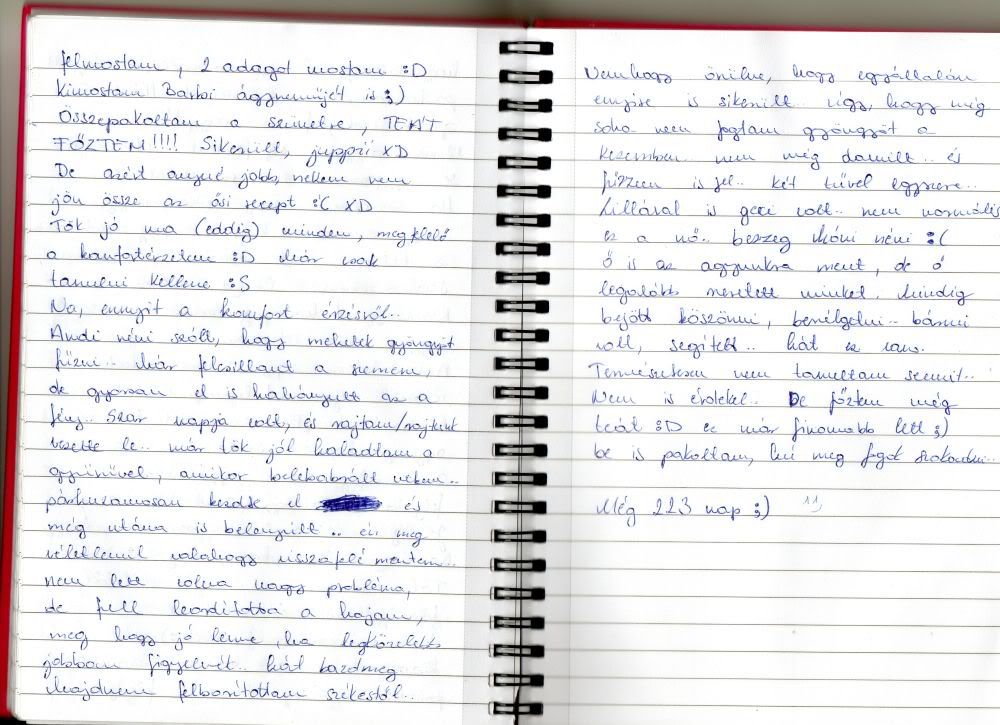 felmostam, 2 adagot mostam :D
kimostam Barbi ágyneműjét is ;)
Összepakoltam a szünetre, TEÁT
FŐZTEM!!!! Sikerült, juppií XD
De azért anyué jobb, nekem nem
jön össze az ősi recept :'( XD
Tök jó ma (eddig) minden, megfelelő
a komfortérzetem :D Már csak
tanulni kellene :S
Na, ennyit a komfort érzésről..
Andi néni szólt, hogy mehetek gyöngyöt
fűzni.. Már felcsillant a szemem,
de gyorsan el is halványult az a
fény.. Szar napja volt, és rajtam/rajtunk
vezette le.. már tök jól haladtam a
gyűrűvel, amikor belebabrált nekem..
párhuzamosan kezdte el és
még utána is belenyúlt .. én meg
véletlenül valahogy visszafelé mentem..
nem lett volna nagy probléma,
de full leordította a hajam,
meg hogy jó lenne, ha legközelebb
jobban figyelnék.. hát bazdmeg..
Majdnem felborítottam székestől..
Nemhogy örülne, hogy egyáltalán
ennyire is sikerült úgy, hogy még
soha nem fogtam gyöngyöt a
kezemben nem még damilt.. és
fűzzem is fel.. két tűvel egyszerre..
Lillával is geci volt.. nem normális
ez a nő.. bezzeg Móni néni :(
ő is az agyunkra ment, de ő
legalább szeretett minket. Mindig
bejött köszönni, beszélgetni.. bármi
volt, segített.. hát ez van..
Természetesen nem tanultam semmit..
Nem is érdekel.. De főztem még
teát :D ez már finomabb lett ;)
be is pakoltam, ki meg fogok szakadni..
Még 223 nap ;)